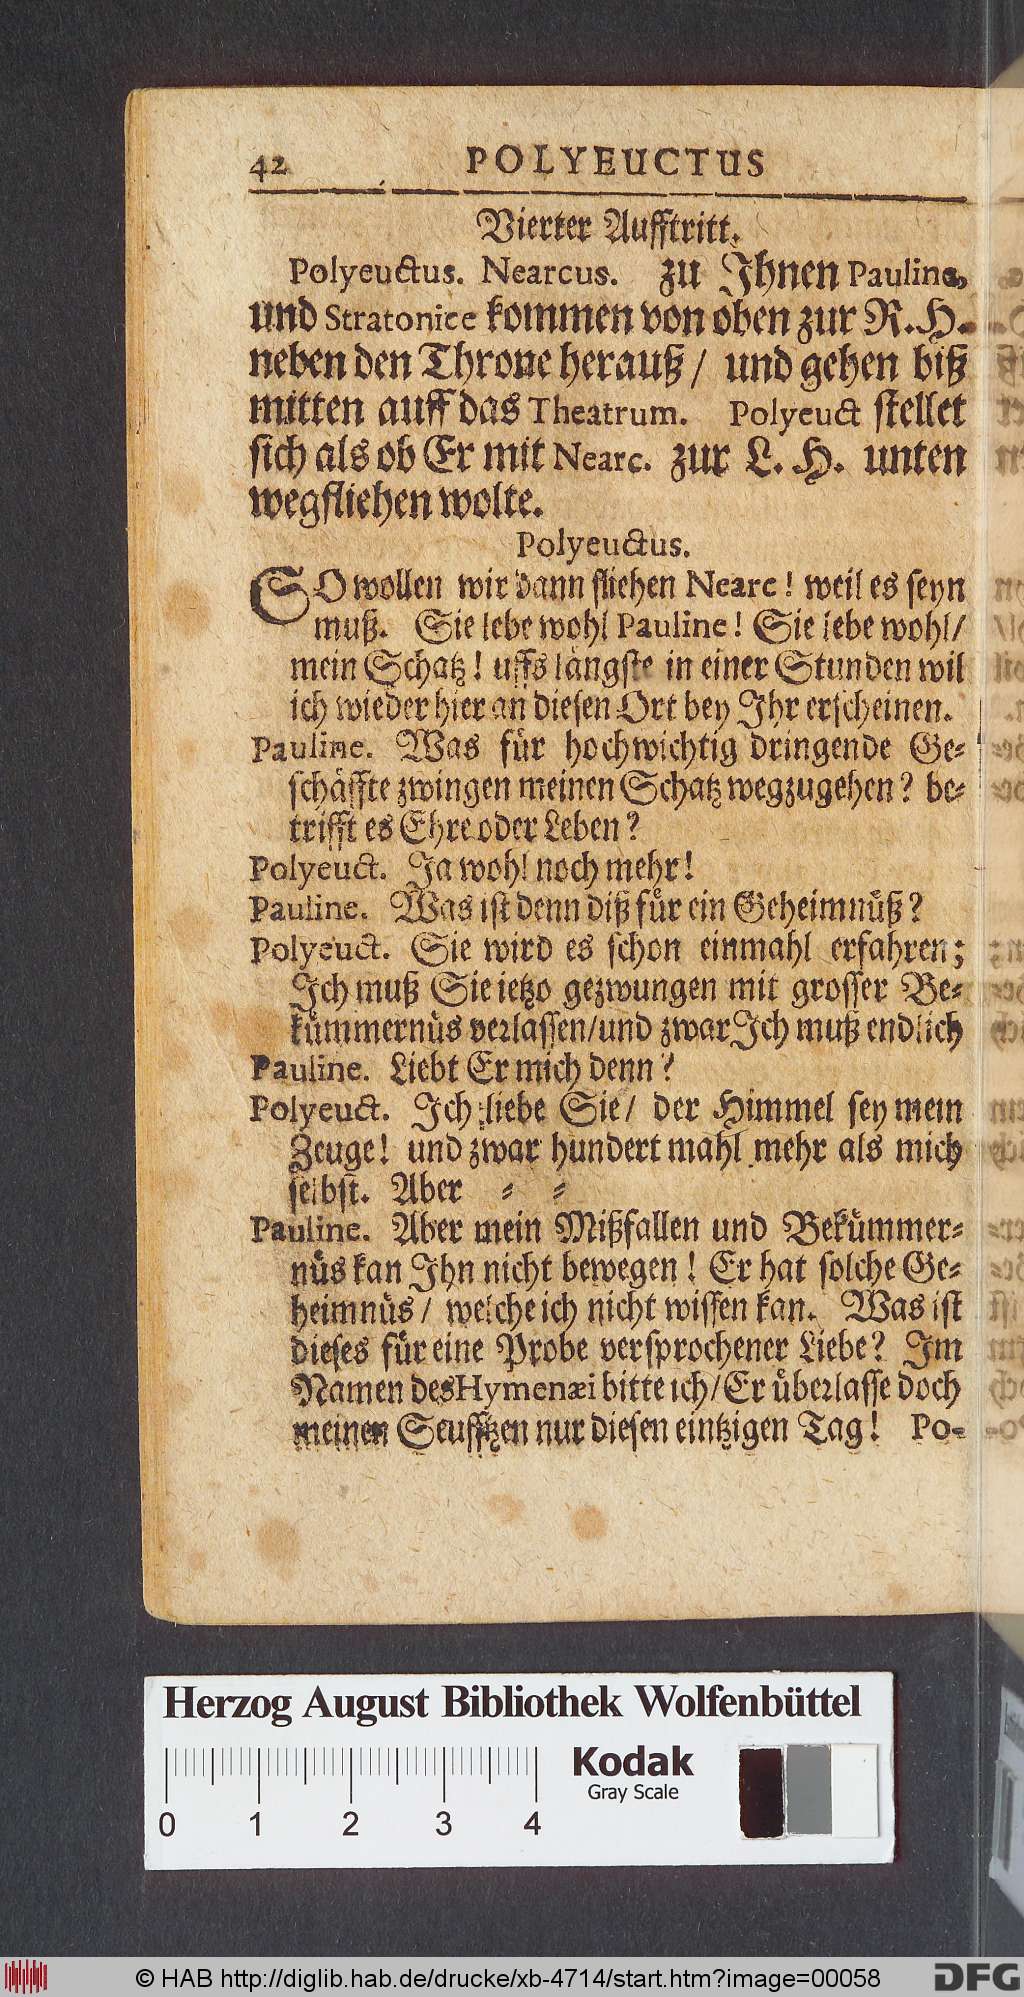 42 POLYEUCTUS
Vierter Aufftritt.
Polyeuctus. Nearcus. zu Ihnen Pauline,
und Stratonice kommen von oben zur R. H.
neben den Throne herauß / und gehen biß
mitten auff das Theatrum. Polyeuct stellet
sich als ob Er mit Nearc. zur L. H. unten
wegfliehen wolte.
Polyeuctus.
SO wollen wir dann fliehen Nearc! weil es seyn
muß. Sie lebe wohl Pauline! Sie lebe wohl/
mein Schatz! uffs längste in einer Stunden wil
ich wieder hier an diesen Ort bey Ihr erscheinen.
Pauline. Was für hochwichtig dringende Ge-
schäffte zwingen meinen Schatz wegzugehen? be-
trifft es Ehre oder Leben?
Polyeuct. Ja wohl noch mehr!
Pauline. Was ist denn diß für ein Geheimnüß?
Polyeuct. Sie wird es schon einmahl erfahren;
Ich muß Sie ietzo gezwungen mit grosser Be-
kümmernüs verlassen/und zwar Ich muß endlich
Pauline. Liebt Er mich denn?
Polyeuct. Ich liebe Sie/ der Himmel sey mein
Zeuge! und zwar hundert mahl mehr als mich
selbst. Aber - -
Pauline. Aber mein Mißfallen und Bekümmer-
nüs kan Ihn nicht bewegen! Er hat solche Ge-
heimnüs / welche ich nicht wissen kan. Was ist
dieses für eine Probe versprochener Liebe? Im
Namen des Hymenæi bitte ich/Er überlasse doch
meinen Seufftzen nur diesen eintzigen Tag! Po-
Herzog August Bibliothek Wolfenbüttel
Kodak
Gray Scale
0 1 2 3 4
© HAB http://diglib.hab.de/drucke/xb-4714/start.htm?image=00058
DFG